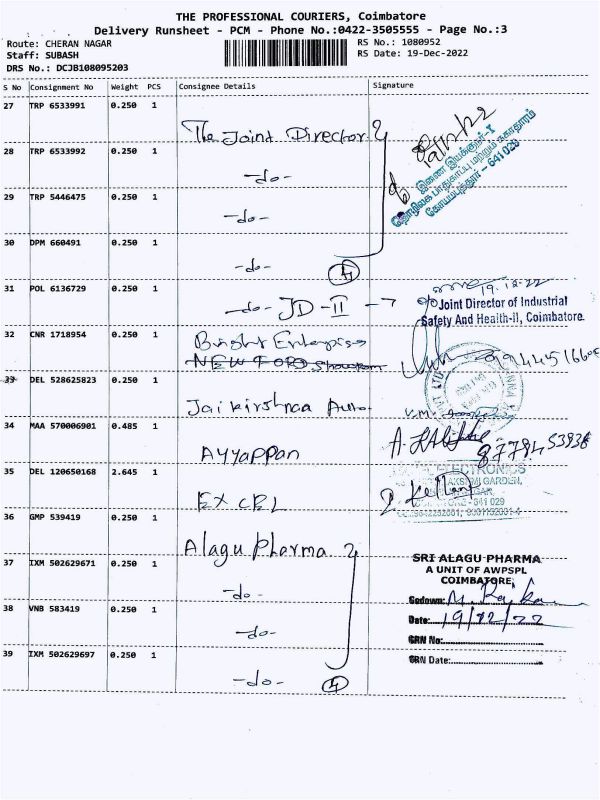 THE PROFESSIONAL COURIERS, Coimbatore
Delivery Runsheet - PCM - Phone No.:0422-3505555 - Page No.:3
Route: CHERAN NAGAR
RS No.: 1080952
Staff: SUBASH
RS Date: 19-Dec-2022
DRS No.: DCJB108095203
S No Consignment No Weight PCS Consignee Details Signature
27 TRP 6533991 0.250 1
The Joint Director
19/12/22
28 TRP 6533992 0.250 1
-do-
இணை இயக்குநர்-I
தொழிலக பாதுகாப்பு மற்றும் சுகாதாரம்
கோயம்புத்தூர் - 641 029
29 TRP 5446475 0.250 1
-do-
30 DPM 660491 0.250 1
-do- 4
31 POL 6136729 0.250 1
-do- JD-II
19.12.22
Joint Director of Industrial
Safety And Health-II, Coimbatore.
32 CNR 1718954 0.250 1
Bright Enterprises
NEW FORD Showroom
33 DEL 528625823 0.250 1
Jai kirshnaa Auto
34 MAA 570006901 0.485 1
AYYAPPAN
35 DEL 120650168 2.645 1
EXCEL
ELECTRONICS
36 GMP 539419 0.250 1
Alagu Pharma
37 IXM 502629671 0.250 1
-do-
SRI ALAGU PHARMA
A UNIT OF AWPSPL
COIMBATORE,
Godown:
38 VNB 583419 0.250 1
-do-
Date: 19/12/22
GRN No:
39 IXM 502629697 0.250 1
GRN Date:
-do- 4